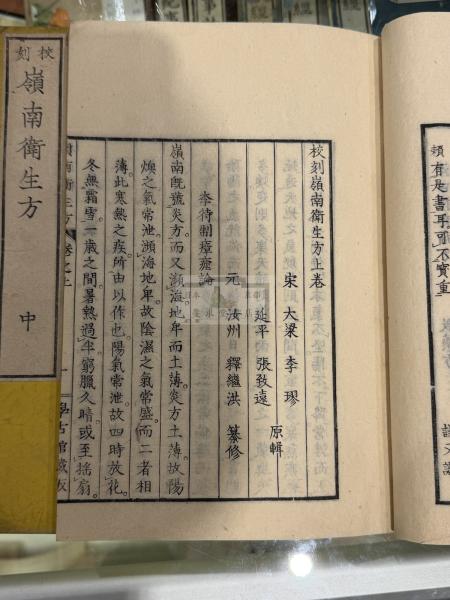 校刻嶺南衛生方上卷
宋 大梁 李璆
延平 張致遠 原輯
元 汝州 釋繼洪 纂修
李待制瘴瘧論
嶺南既號炎方而又瀕海地卑而土薄炎方土薄故陽
燠之氣常泄瀕海地卑故陰濕之氣常盛而二者相
薄此寒熱之疾所由以作也陽氣常泄故四時放花
冬無霜雪一歲之間暑熱過半窮臘久晴或至搖扇
嶺南衛生方 卷之上 一 學古館藏版
校刻
嶺南衛生方
中
有是書耳可不寶重